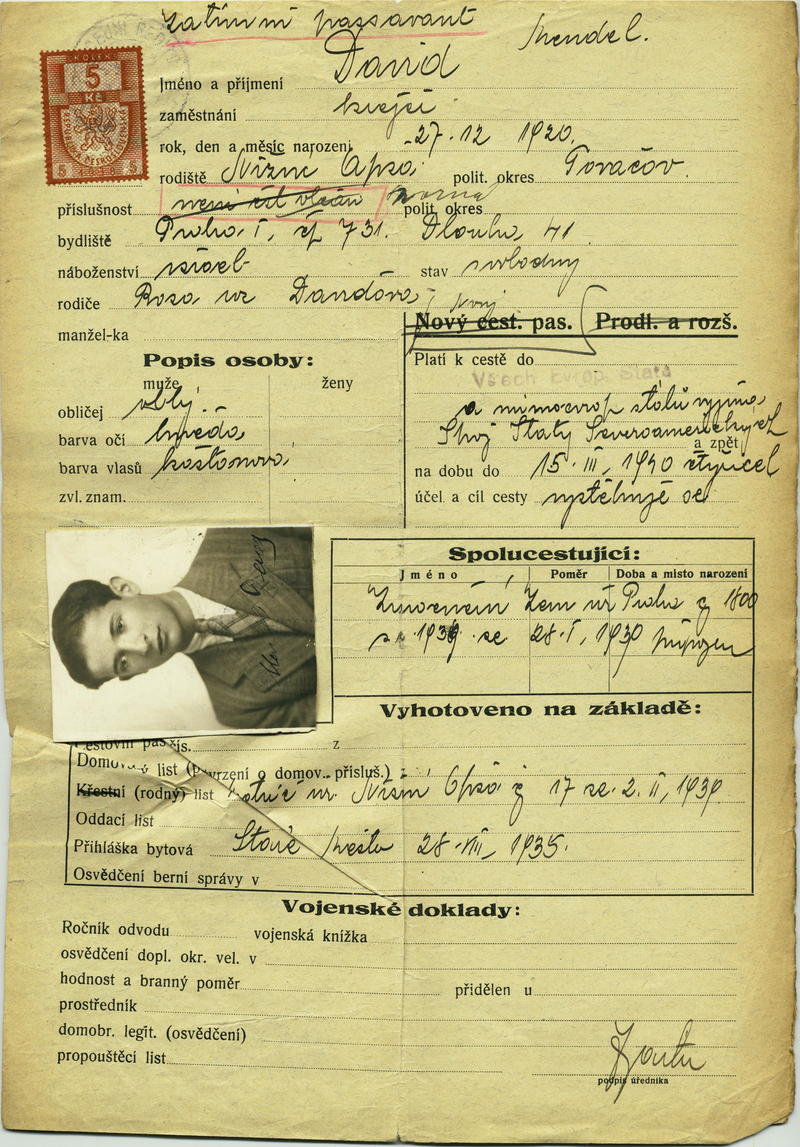 Zatímní passavant
David Mendel.
KOLEK
5
Kč
REPUBLIKA ČESKOSLOVENSKÁ
5 5
Jméno a příjmení
zaměstnání krejčí
rok, den a měsíc narození 27. 12 1920.
rodiště Nižní Apša polit. okres
příslušnost není čsl občan polit. okres
bydliště Praha I, čp 731. Dlouhá 41
náboženství israel stav svobodný
rodiče Rosa Davidová
manžel-ka
Nový cest. pas. Prodl. a rozš.
Popis osoby:
muže ženy
Platí k cestě do
Všech Evrop. Států
obličej oblý
a mimoevrop států vyjma
barva očí hnědá
Spoj Státy Severoamerických
a zpět
barva vlasů kaštanová
na dobu do 15. III, 1940 čtyřicet
zvl. znam.
účel a cíl cesty vystěhuje se
Spolucestující:
Jméno Poměr Doba a misto narození
Zem úř Praha č 1800
se 28. I, 1930
Vyhotoveno na základě:
Cestovní pas čís. z
Domovský list (potvrzení o domov. přísluš.)
Křestní (rodný) list úř. Nižní Apša č 17 ze 2. II, 1939.
Oddací list
Přihláška bytová Staré Město 28. VIII, 1935.
Osvědčení berní správy v
Vojenské doklady:
Ročník odvodu vojenská knížka
osvědčení dopl. okr. vel. v
hodnost a branný poměr přidělen u
prostředník
domobr. legit. (osvědčení)
propouštěcí list
podpis úředníka